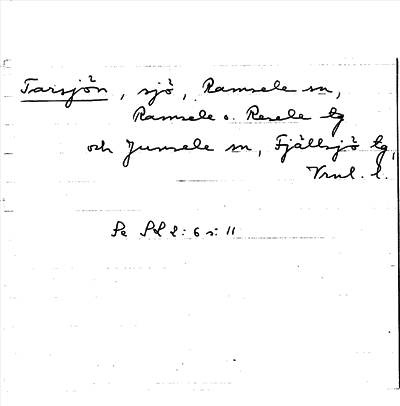 Tarsjön, sjö, Ramsele sn,
Ramsele o. Resele tg
och Junsele sn, Fjällsjö tg,
Vrnl. l.
Se Sd 2:6 s: 11